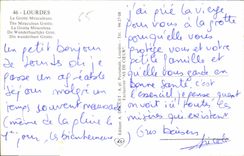 46 - LOURDES
La Grotte Miraculeuse
The Miraculous Grotto
La Grotta Miracolosa
De Wonderbaarlijke Grot
Die wunderbare Grotte
Un petit bonjour
de Lourdes où je
passe un agréable
séjour malgré un
temps souvent maussade
(même de la pluie le
1er jour, les bientenus
j'ai prié la vierge
pour vous à la grotte
pour qu'elle vous
protège vous et votre
petite famille et
qu'elle vous garde en
bonne santé. C'est
l'essentiel je pense quand
on voit ici toutes les
misères qui existent
Gros baisers